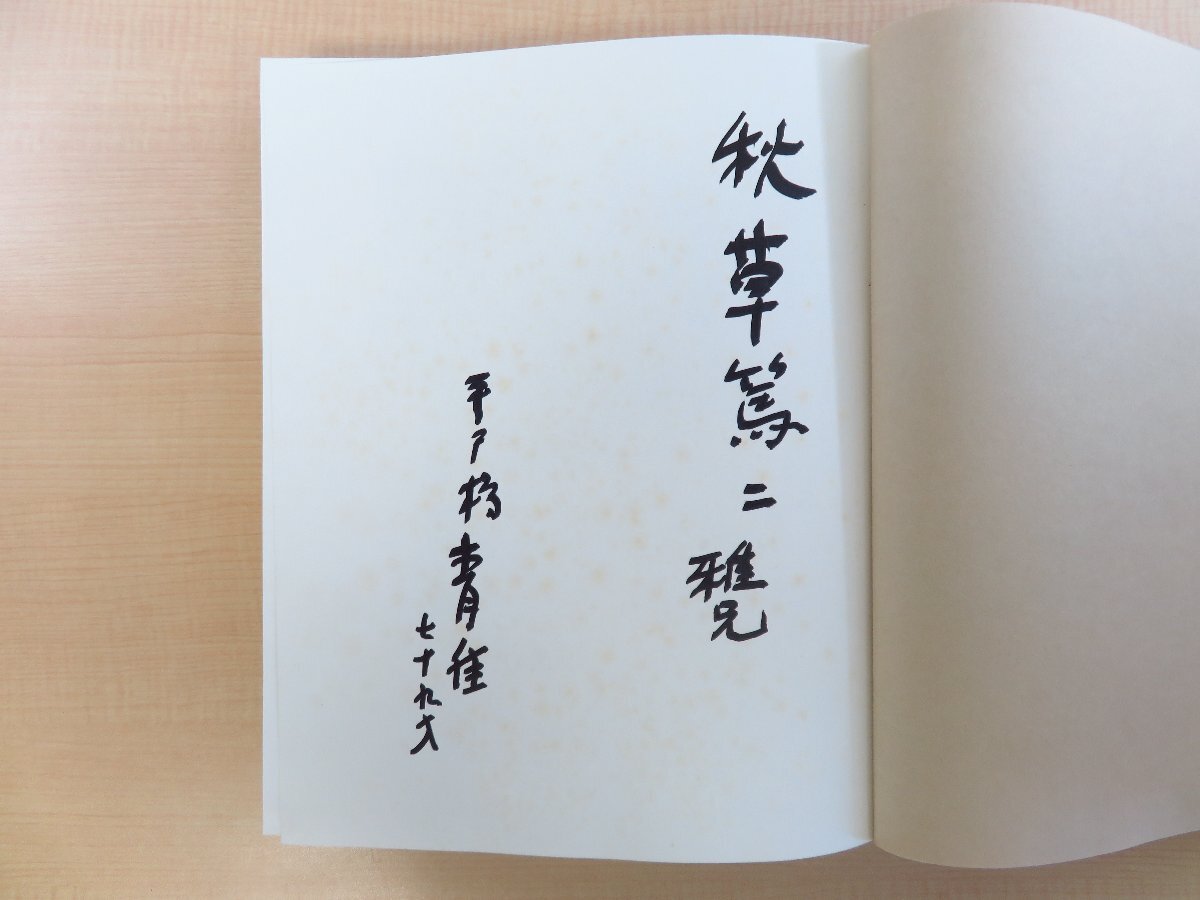 秋草篤二雅兄
平戸橋青隹
七十九才